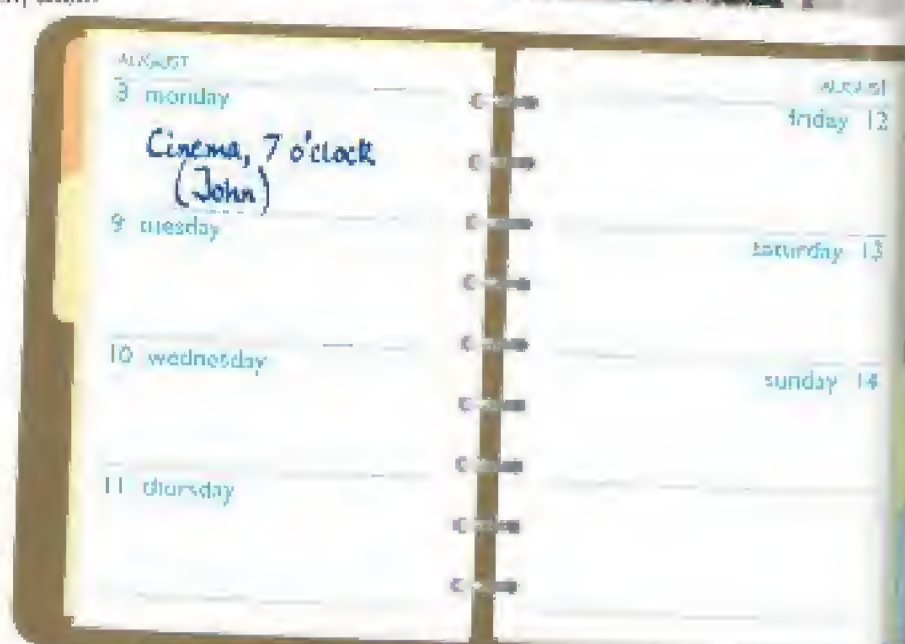 AUGUST
8 monday
Cinema, 7 o'clock
(John)
9 tuesday
10 wednesday
11 thursday
AUGUST
friday 12
saturday 13
sunday 14